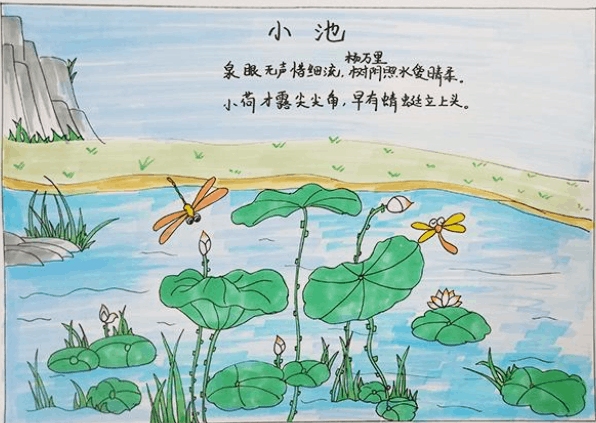 小池
杨万里
泉眼无声惜细流，树阴照水爱晴柔。
小荷才露尖尖角，早有蜻蜓立上头。